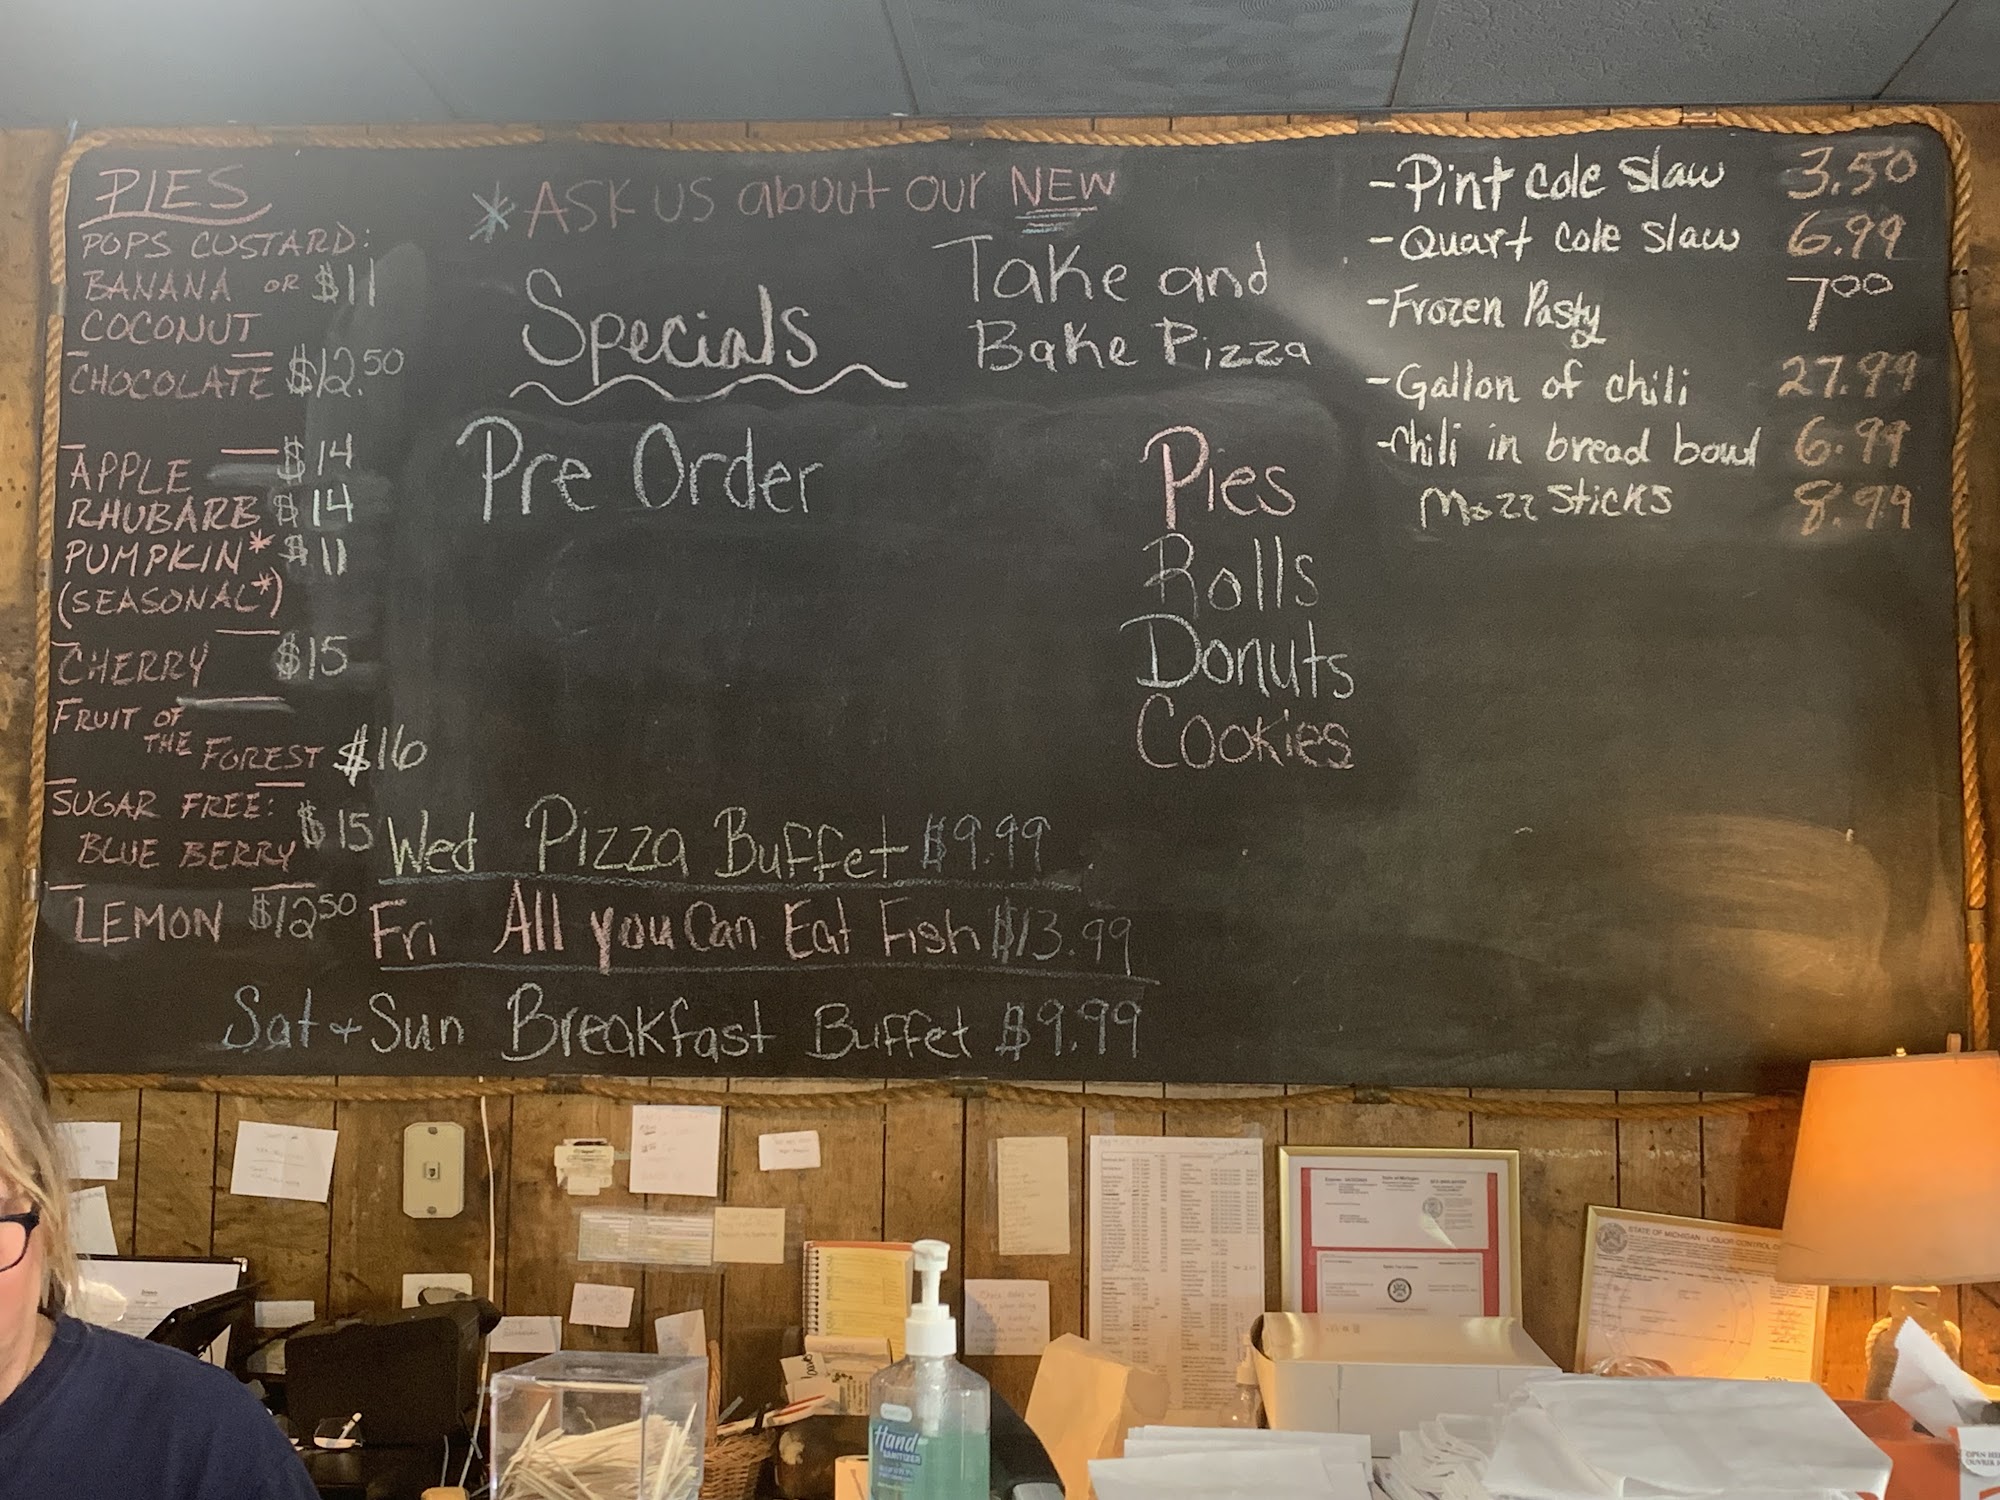 PIES
POPS CUSTARD:
BANANA OR $11
COCONUT
CHOCOLATE $12.50
APPLE $14
RHUBARB $14
PUMPKIN* $11
(SEASONAL*)
CHERRY $15
FRUIT OF
THE FOREST $16
SUGAR FREE:
BLUE BERRY $15
LEMON $12 50
*ASK US about our NEW
Take and
Bake Pizza
Specials
Pre Order
Pies
Rolls
Donuts
Cookies
Wed Pizza Buffet $9.99
Fri All you Can Eat Fish $13.99
Sat + Sun Breakfast Buffet $9.99
- Pint cole slaw 3.50
- Quart cole slaw 6.99
- Frozen Pasty 7 00
- Gallon of chili 27.99
- Chili in bread bowl 6.99
Mozz sticks 8.99
State of Michigan
STATE OF MICHIGAN - LIQUOR CONTROL
Hand
SANITIZER